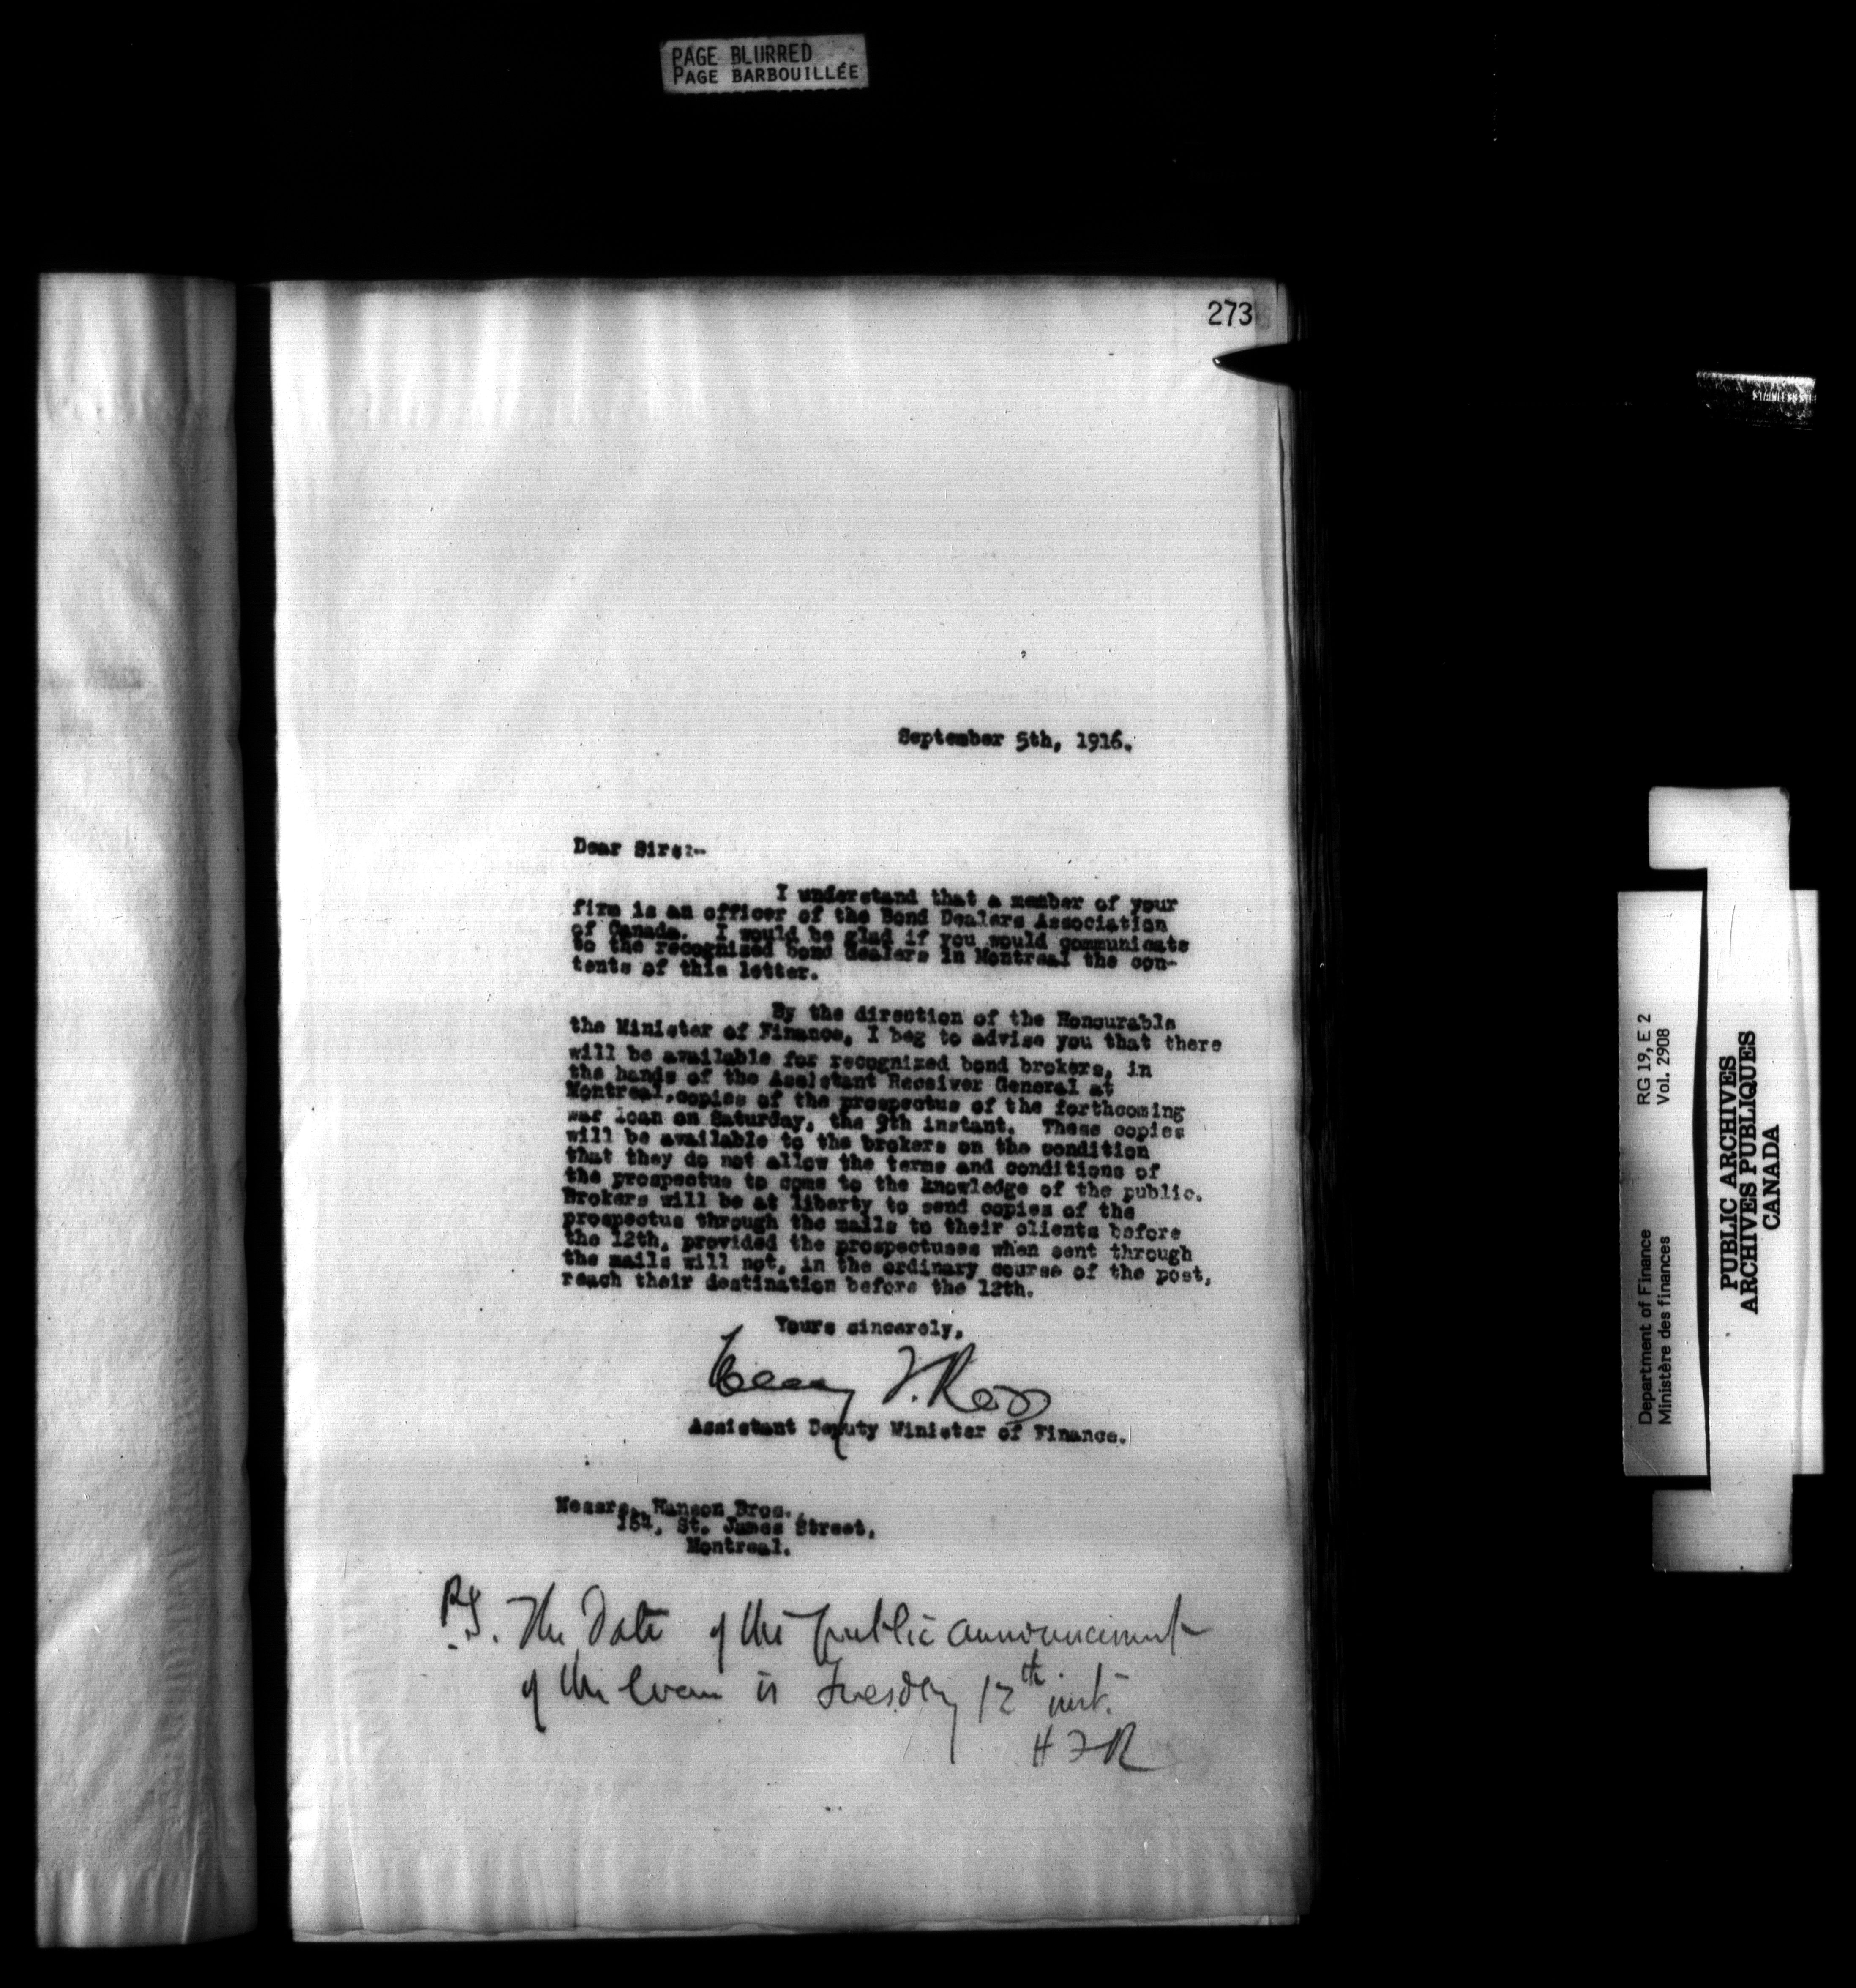 PAGE BLURRED
PAGE BARBOUILLÉE
273
September 5th, 1916.
Dear Sirs:-
I understand that a member of your
firm is an officer of the Bond Dealers Association
of Canada. I would be glad if you would communicate
to the recognized bond dealers in Montreal the con-
tents of this letter.
By the direction of the Honourable
the Minister of Finance, I beg to advise you that there
will be available for recognized bond brokers, in
the hands of the Assistant Receiver General at
Montreal, copies of the prospectus of the forthcoming
war loan on Saturday, the 9th instant. These copies
will be available to the brokers on the condition
that they do not allow the terms and conditions of
the prospectus to come to the knowledge of the public.
Brokers will be at liberty to send copies of the
prospectus through the mails to their clients before
the 12th, provided the prospectuses when sent through
the mails will not, in the ordinary course of the post,
reach their destination before the 12th.
Yours sincerely,
Henry T. Ross
Assistant Deputy Minister of Finance.
Messrs. Hanson Bros.,
164, St. James Street,
Montreal.
P.S. The Date of the public announcement
of the loan is Tuesday 12th inst.
HTR
Department of Finance RG 19, E 2
Ministère des finances Vol. 2908
PUBLIC ARCHIVES
ARCHIVES PUBLIQUES
CANADA